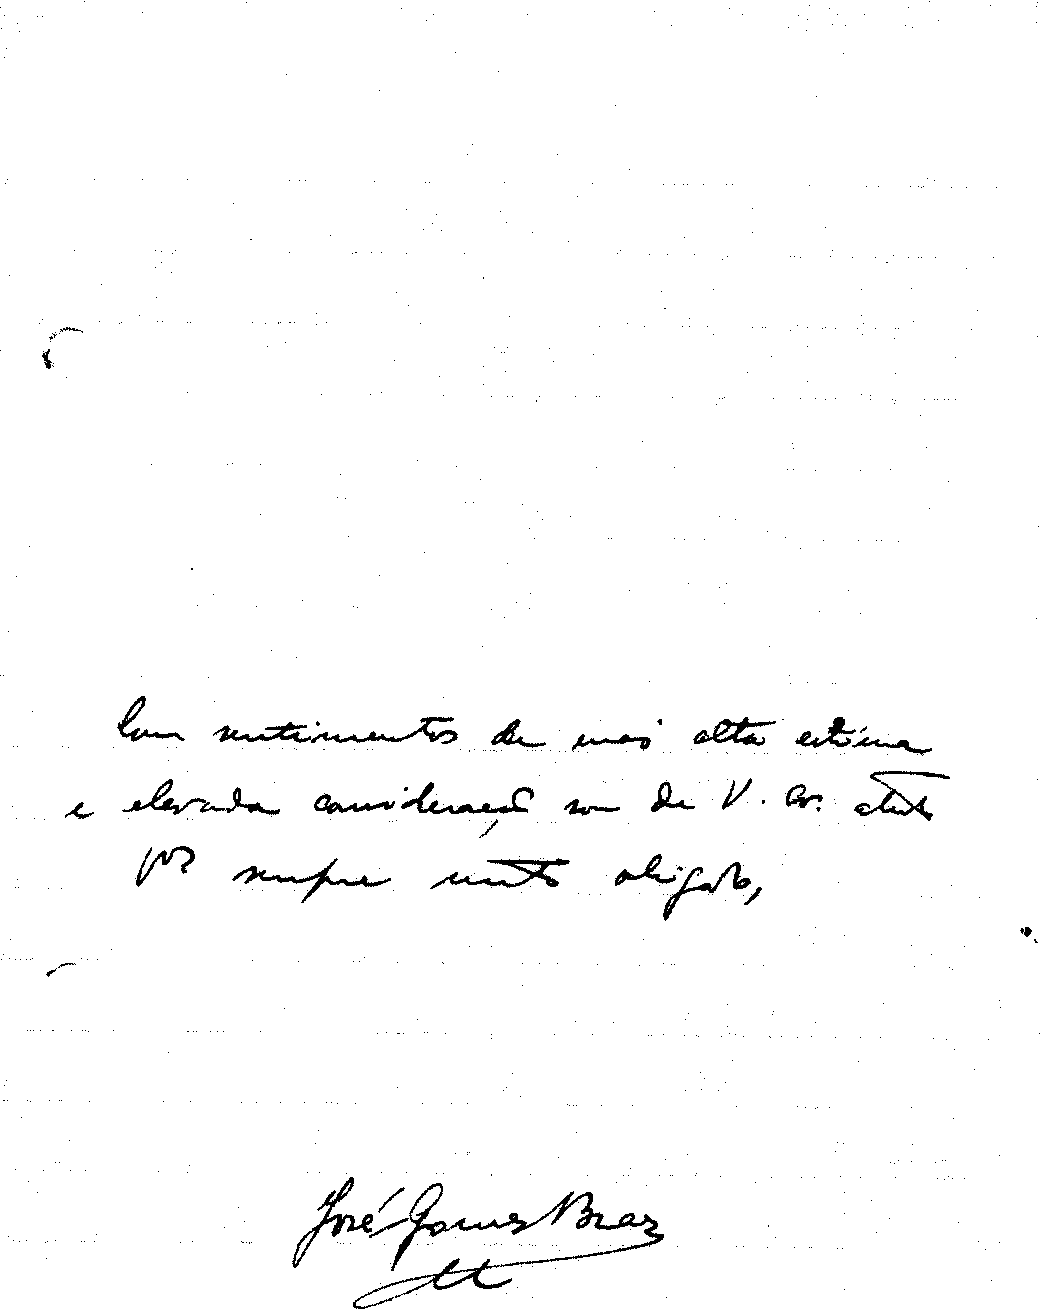 Com sentimentos de mais alta estima
e elevada consideração sou de V. Ex. atto
sempre muito obrigado,
José Gomes Braz